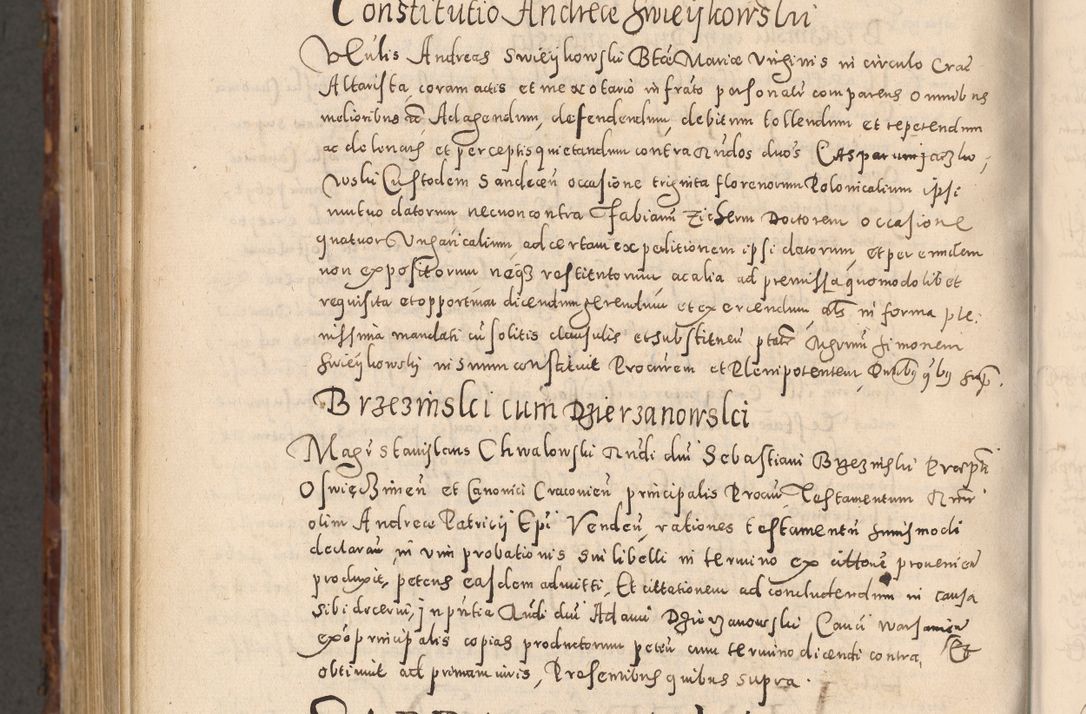 Constitutio Andreæ Swieijkowskii
Vblis Andreas Swieijkowski Btæ Mariæ Virginis in circulo Crac
Altarista coram actis et me notario infrato personalr comparens omnibus
melioribus Ad agendum, defendendum, debitum tollendum et repetendum
ac de lenaris et perceptis quietandum contra Rndos duos Casparum jazlo,
woski Custodem Sandecen occasione triginta florenorum Polonicalium ipsi
mutuo datorum necnon contra Fabianum Zichern Doctorem occasione
quatuor Ungaricalium ad certam expeditionem ipsi datorum, et per eundem
non expositorum neqz restitutorum, ac alia ad premissa quomodolibet
requisita et opportuna dicendum gerendum et exercendum, als in forma ple,
nissima mandati cu solitis clausulis et substituen ptate Simonem
Swieijkowski in suum constituit Procurem et Plenipotentem, Pntibus qbus supr.
Brzezinski cum Dzierzanowski
Magr Stanislaus Chwalowski Rndi dni Sebastiani Brzezinski Prepti
Oswięczimen et Canonici Cracovien principalis Procur Testamentum Rndi
olim Andreæ Patricij Epi Venden, rationes testamenti huiusmodi
declaran in vim probationis sui libelli in termino ex cittone provenien
produxit, petens easdem admitti, Et cittationem ad concludendum in causa
sibi decerni, in pntia Rndi dni Adami Dzierzanowski Canci Warsawien
ex opo principalis copias productorum peten cum termino dicendi contra, Et
obtinuit ad primam iuris, Presentibus quibus supra.